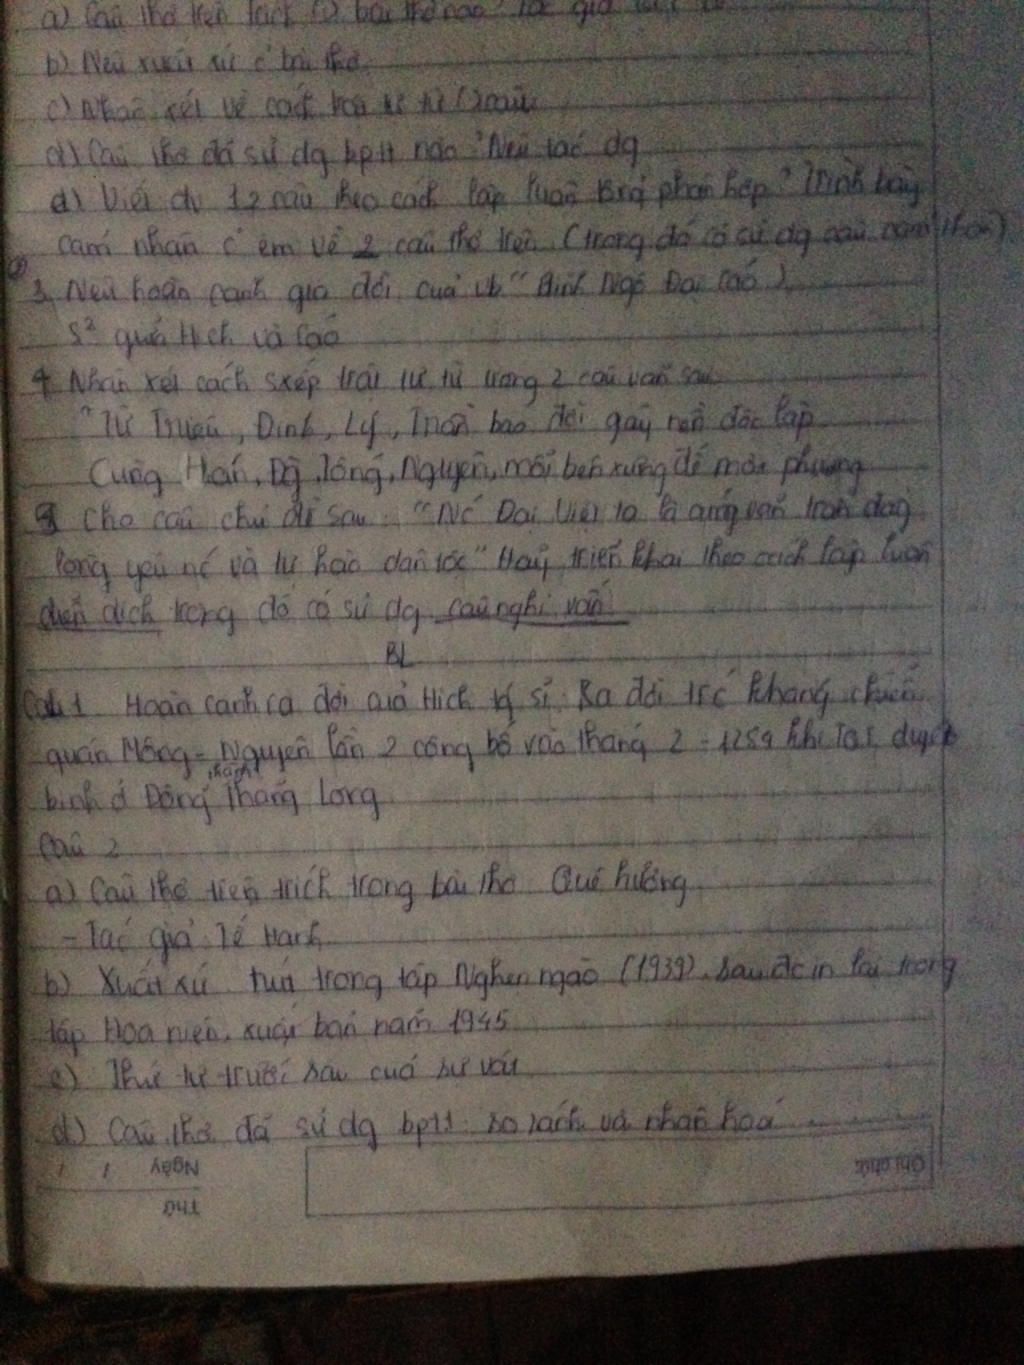 a) Câu thơ trên trích bài thơ nào
b) Nêu xuất xứ c̉ bài thơ
c) Nhận xét về cách câu
d) Câu thơ đã sử dg bptt nào ? Nêu tác dg
đ) Viết đv 12 câu theo cách lập luận tổng phân hợp ? Trình bày
cảm nhận c̉ em về 2 câu thơ trên (trong đó có sử dg câu cảm thán)
3, Nêu hoàn cảnh ra đời của vb " Bình Ngô Đại Cáo )
S² giữa Hịch và Cáo
4 Nhận xét cách sxếp trật tự từ trong 2 câu văn sau
"Từ Triệu, Đinh, Lý, Trần bao đời gây nền độc lập
Cùng Hán, Đg, Tống, Nguyên, mỗi bên xưng đế một phương
5 Cho câu chủ đề sau : "Nc Đại Việt ta là áng văn tràn đầy
lòng yêu nc và tự hào dân tộc" Hãy triển khai theo cách lập luận
diễn dịch trong đó có sử dg câu nghi vấn
BL
Câu 1 Hoàn cảnh ra đời của Hịch tg sĩ: Ra đời trc kháng chiến
quân Mông - Nguyên lần 2 công bố vào tháng 2 - 1284 khi duyệt
thành
binh ở Đông Thăng Long
Câu 2
a) Câu thơ trên trích trong bài thơ Quê hương
- Tác giả Tế Hanh
b) Xuất xứ rút trong tập Nghẹn ngào (1939). Sau đc in lại trong
tập Hoa niên, xuất bản năm 1945
c) Thứ tự trước sau của sự vật
d) Câu thơ đã sử dg bptt so sánh và nhân hoá
Ghi chú
Ngày / /
Thứ